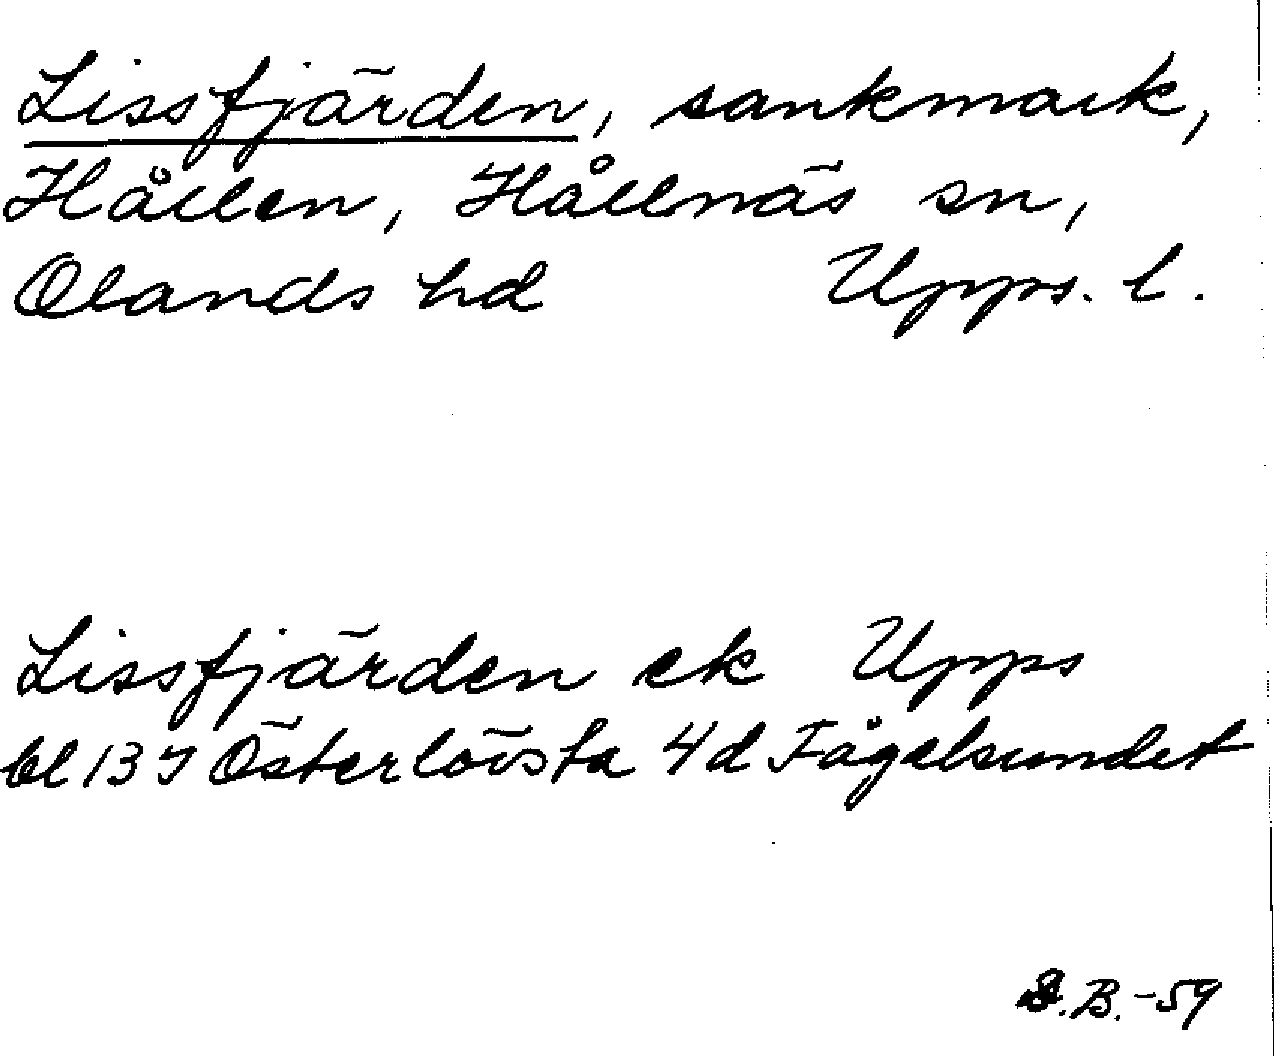 Lissfjärden, sankmark,
Hållen, Hållnäs sn,
Olands hd Upps. l.
Lissfjärden ek Upps
bl 13 I Österlövsta 4 d Fågelsundet
B. -59